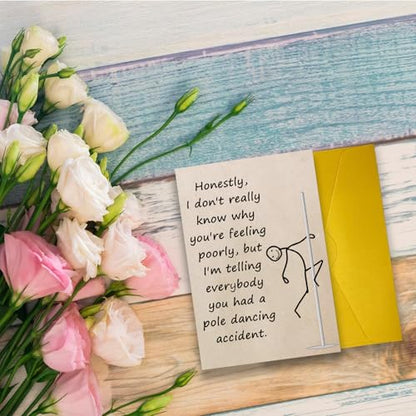 Honestly,
I don't really
know why
you're feeling
poorly, but
I'm telling
everybody
you had a
pole dancing
accident.